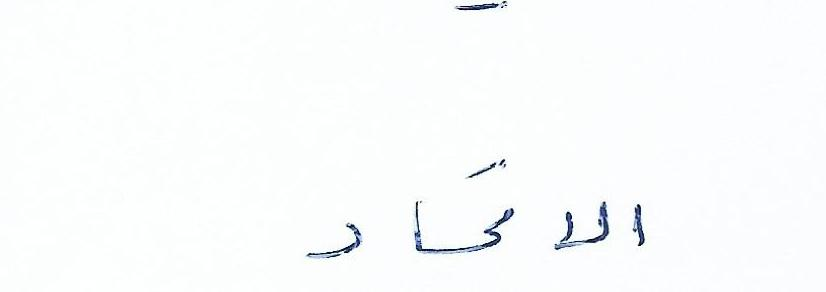 الاتحاد